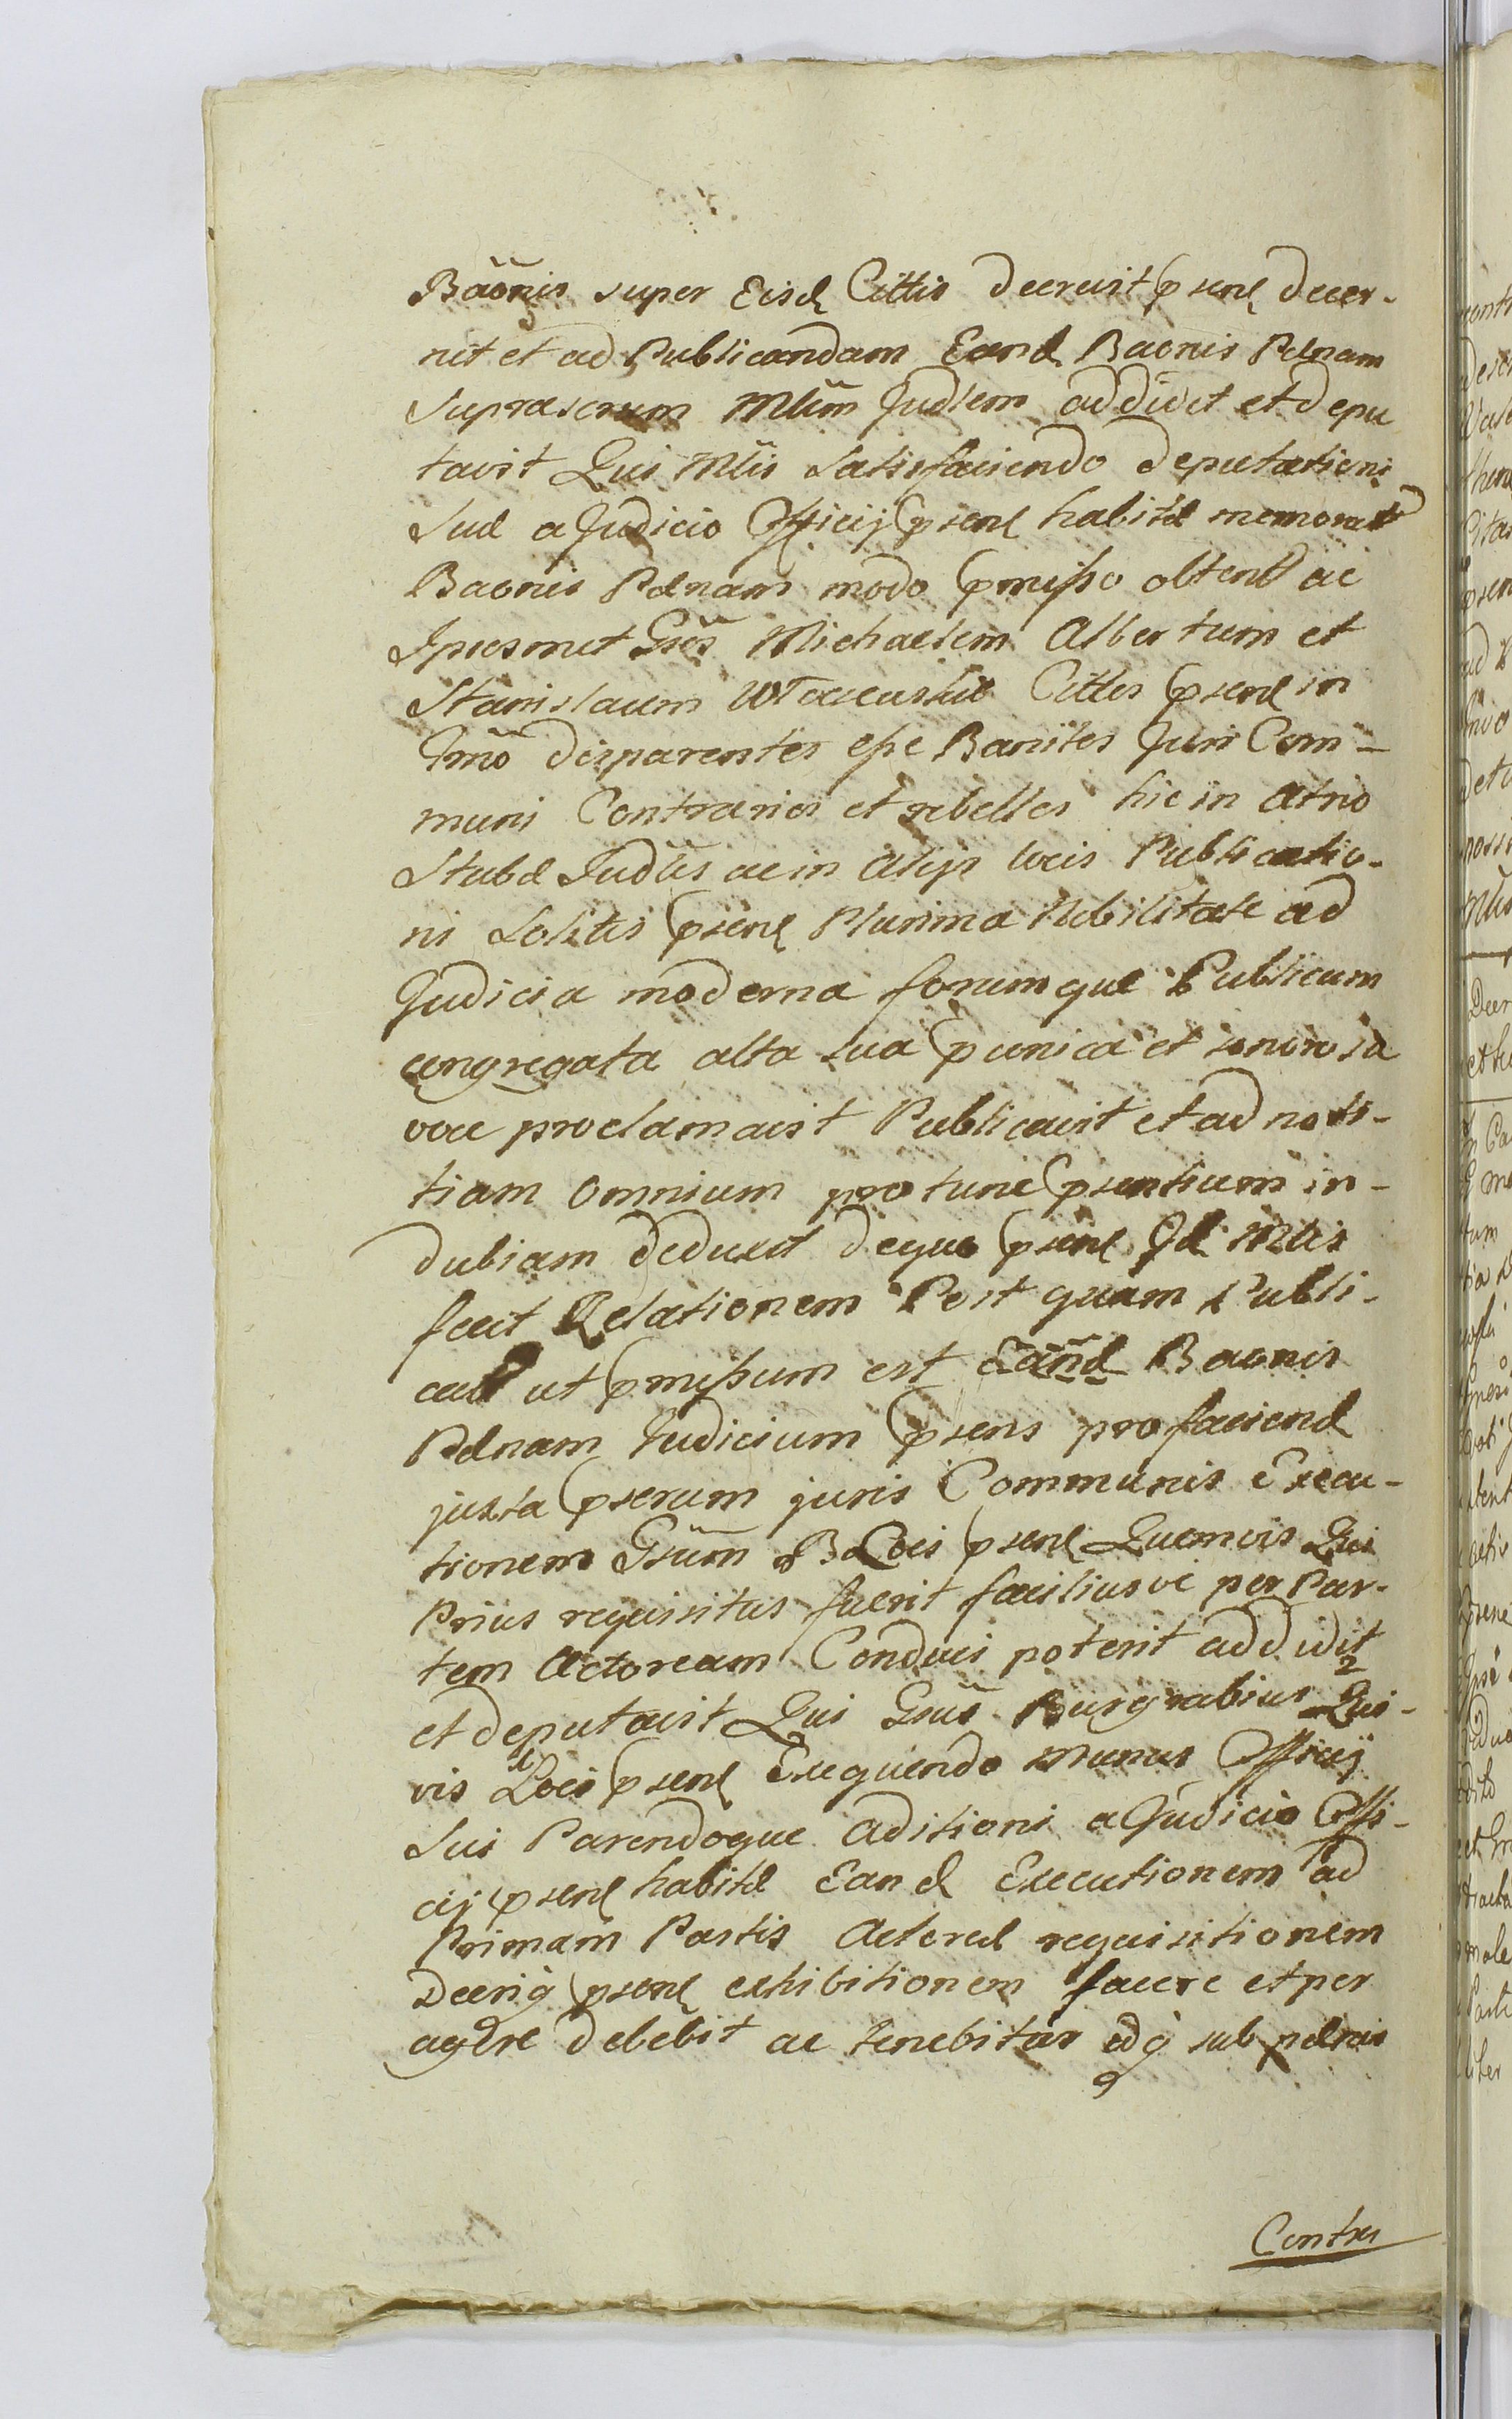 Bãõnis super Eisd Cittis decrevit psens decer-
nit et ad Publicandam Eand Baonis Pænam
Suprascrum Mlum Judlem addidit et depu
tavit Qui Mlis Satisfaciendo deputationi
Suæ a Judicio Officij psens habitæ memorat
Baonis Pænam modo pmisso obtent ac
Ipsosmet Gsos Michaelem Albertum et
Stanislaum Cittos psens in
Tmõ disparentes esse Banitos Juri Com-
muni Contrarios et rebelles hic in Atrio
Stubæ Judlis ac in alijs locis Publicatio-
ni Solitis psens Plurima Nobilitate ad
Judicia moderna forumque Publicum
congregata alta sua punica et sonorosa
voce proclamavit Publicavit et ad noti-
tiam omnium pro tunc psentium in-
dubiam deduxit deque psens Id Mlis
fecit Relationem Post quam Publi-
cat ut pmissum est Eãnd Baonis
Pænam Judicium psens pro faciend
juxta pscrum juris Communis Execu-
tionem Gsum B Loci psens Quemvis Qui
Prius requisitus fuerit faciliusve per Par-
tem Actoream Conduci poterit addidit
et deputavit Qui Gsus Burgrabius Qui-
vis Loci psens Exequendo Munus Officij
Sui Parendoque aditioni a Judicio Offi-
cij psens habitæ Eand Executionem ad
Primam Partis Actoreæ requisitionem
Decriq psens exhibitionem facere et per
agere debebit ac tenebitur idq sub pænis
Contra